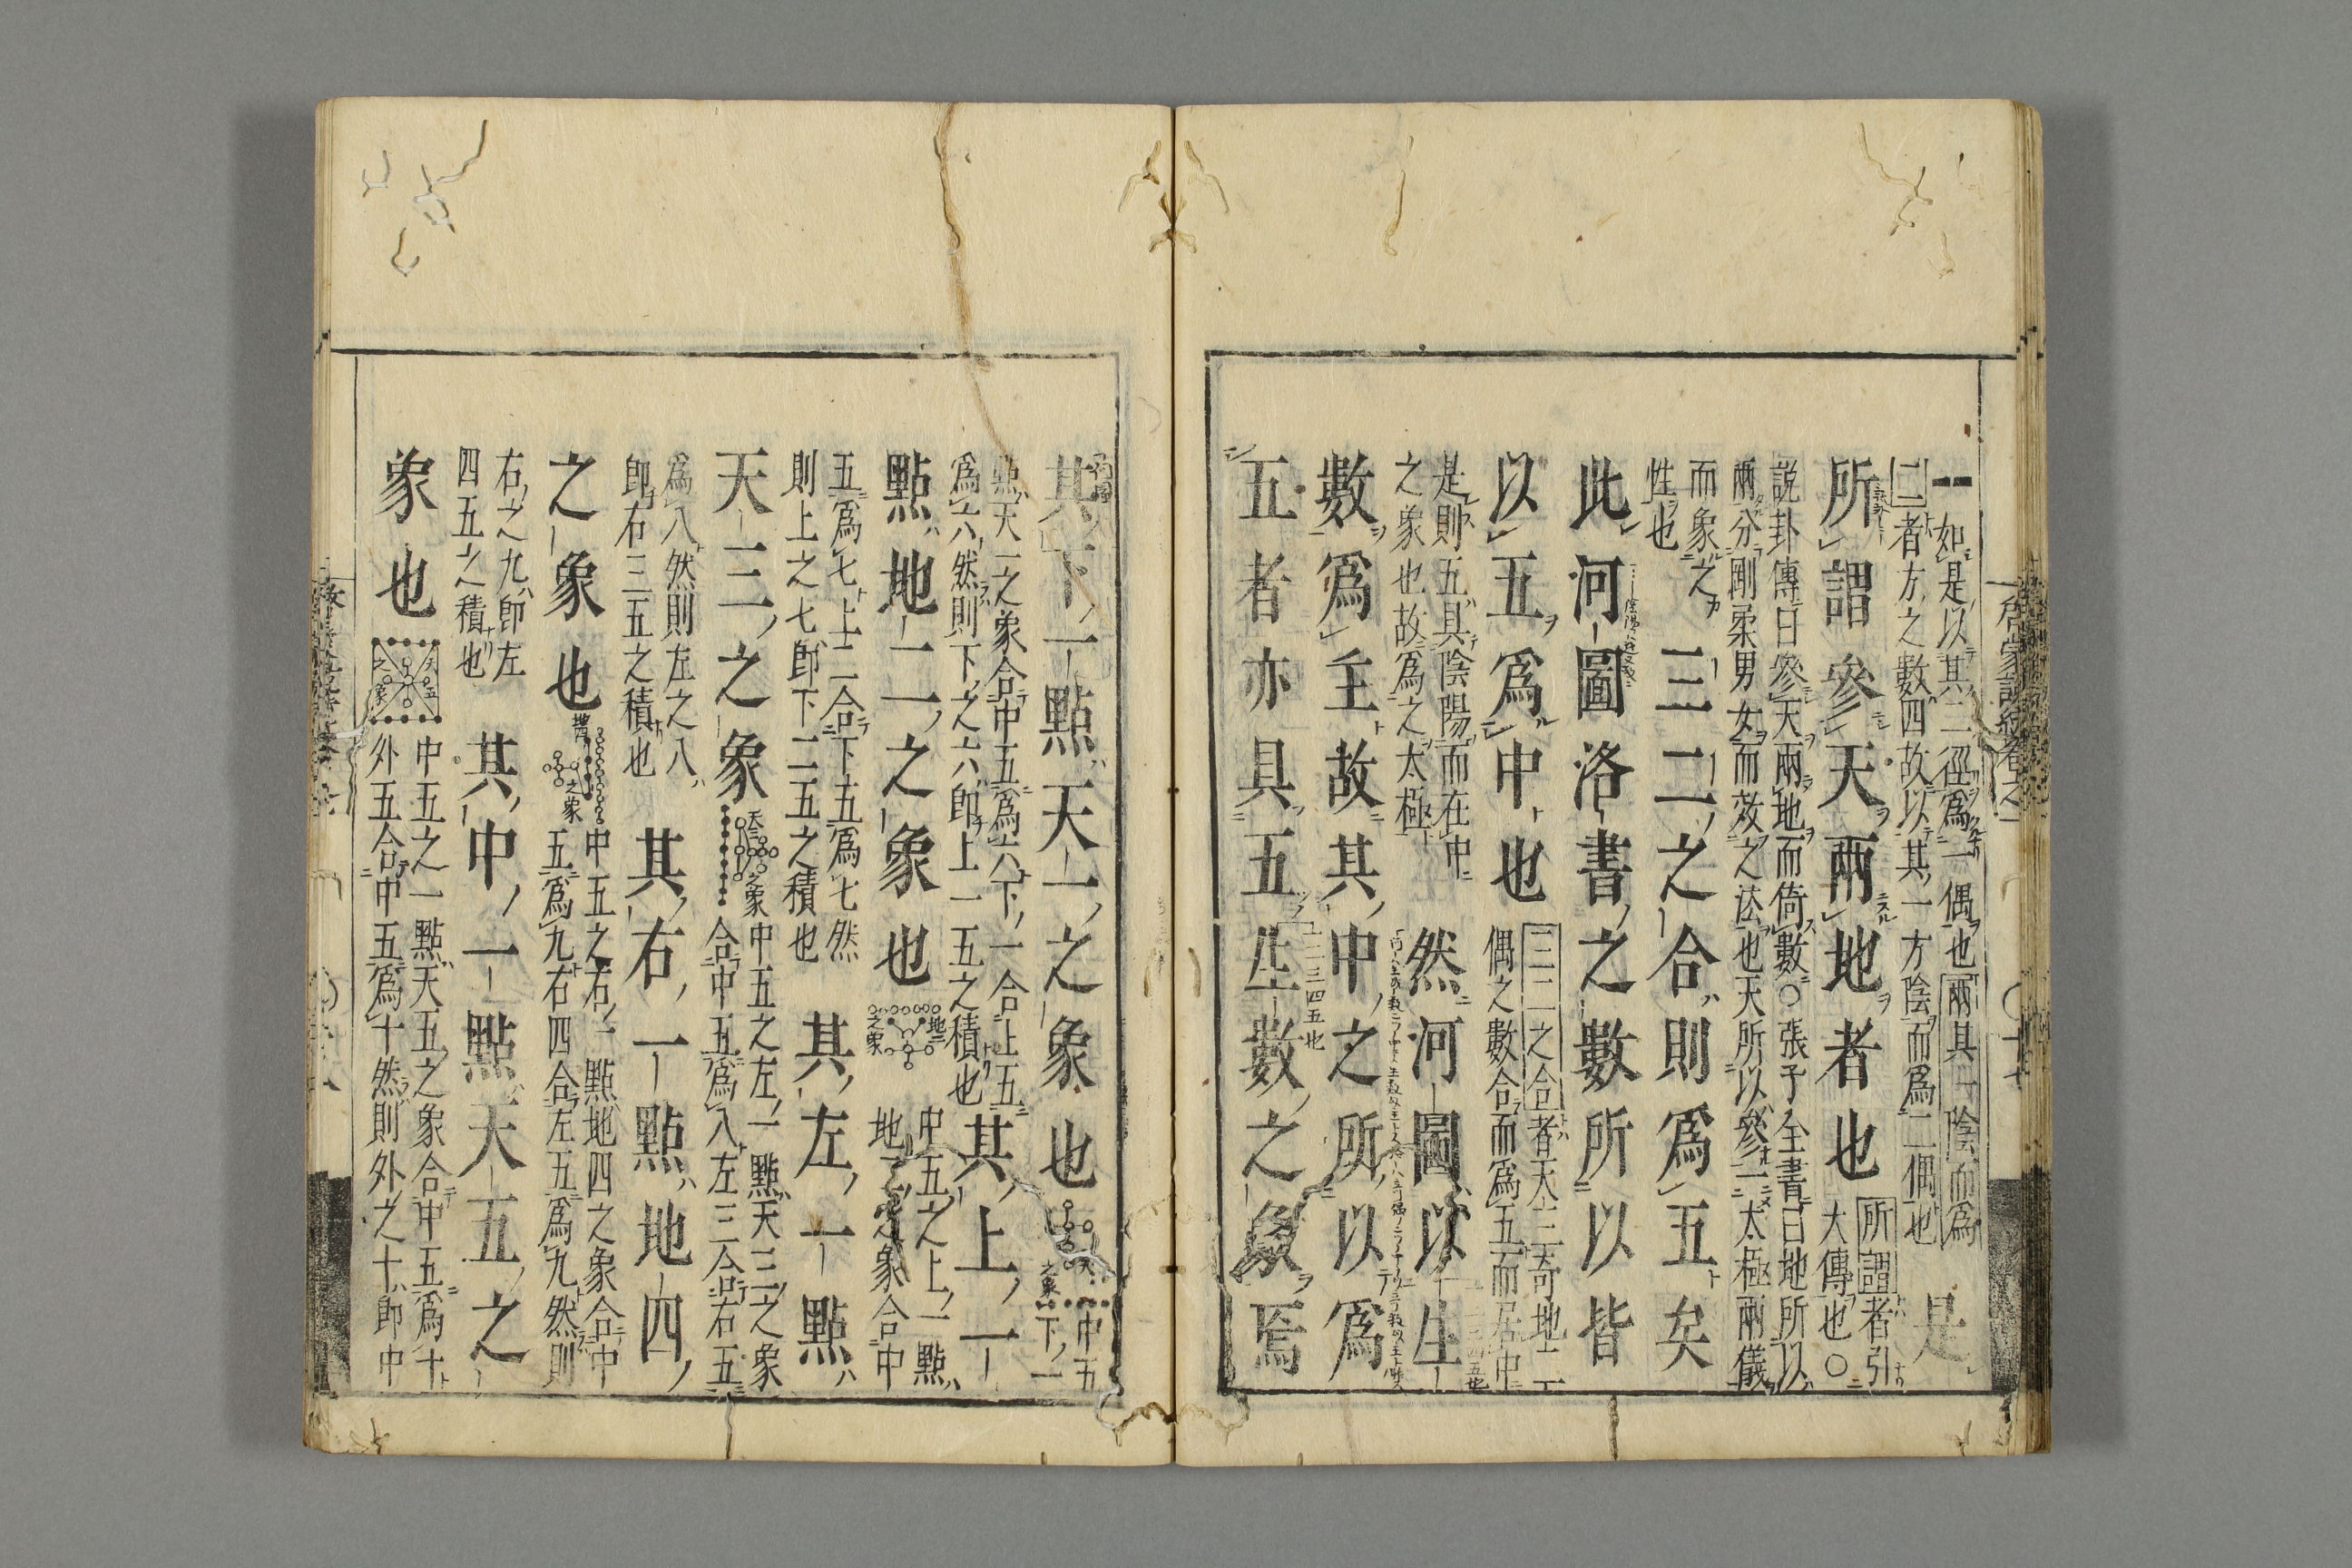 一
如是以其二徑爲一偶也兩其一陰而爲
二者方之數四故以其一方陰而爲二偶也
是
所謂參天兩地者也
所謂者引
大傳也○
説卦傳曰參天兩地而倚數○張子全書曰地所以
兩分剛柔男女而效之法也天所以參一太極兩儀
而象之
性也
三二之合則爲五矣
此河圖洛書之數所以皆
以五爲中也
三二之合者天三奇地二
偶之數合而爲五而居中
是則五具陰陽而在中
之象也故爲之太極
然河圖以生
數爲主故其中之所以爲
五者亦具五生數之象焉
一二三四五也
其下一點天一之象也
之象
中五
下一
點天一之象合中五爲六下一合上五
爲六然則下之六即上一五之積也
其上一
點地二之象也
地二
之象
中五之上一點
地二之象合中
五爲七上二合下五爲七然
則上之七即下二五之積也
其左一點
天三之象
天三
之象
中五之左一點天三之象
合中五爲八左三合右五
爲八然則左之八
即右三五之積也
其右一點地四
之象也
之象
中五之右一點地四之象合中
五爲九右四合左五爲九然則
右之九即左
四五之積也
其中一點天五之
象也
天五
之象
中五之一點天五之象合中五爲十
外五合中五爲十然則外之十即中